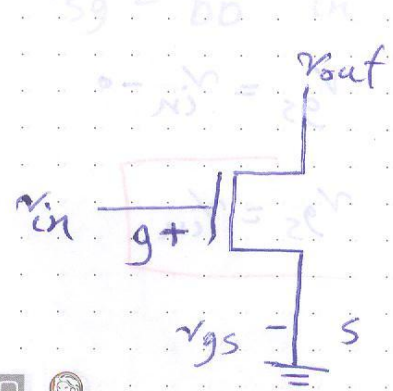 Vout
Vin
g +
Vgs - S